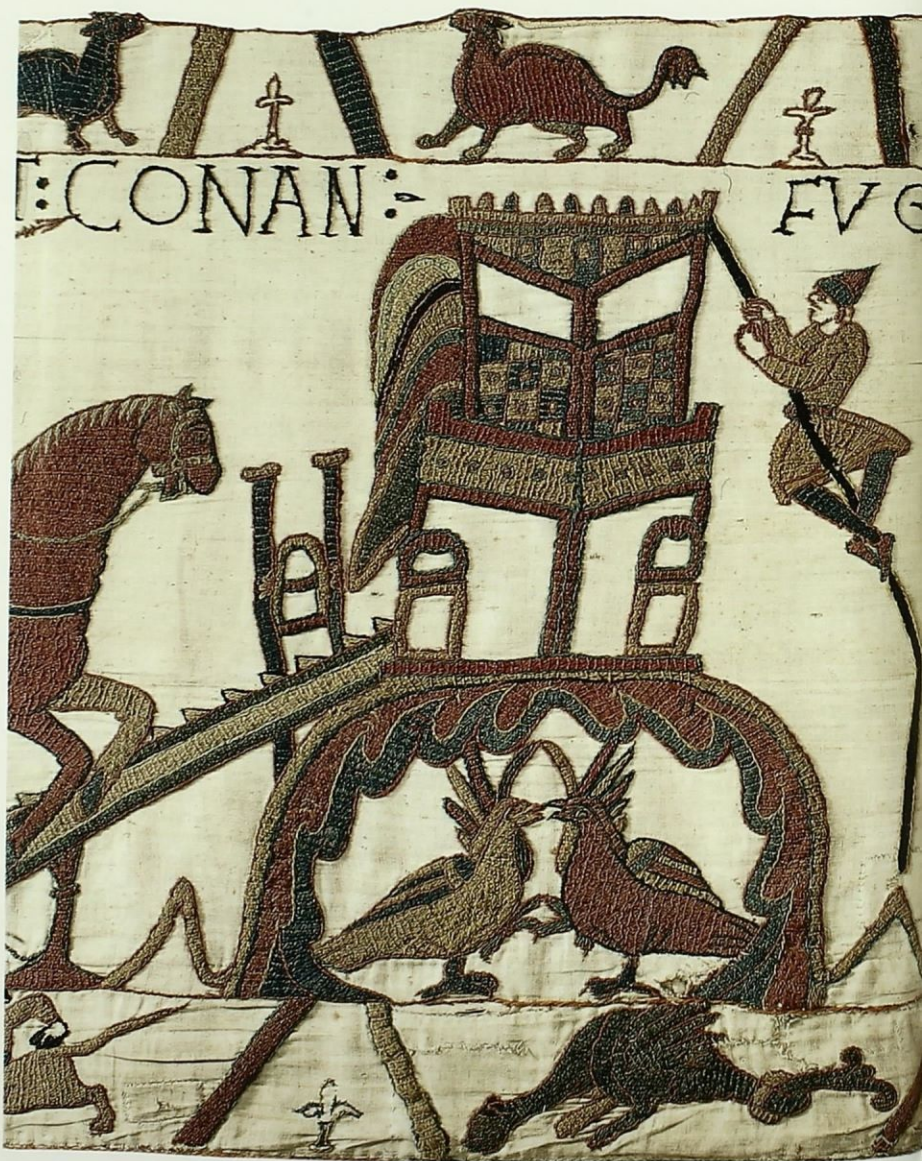 T:CONAN:- FVG